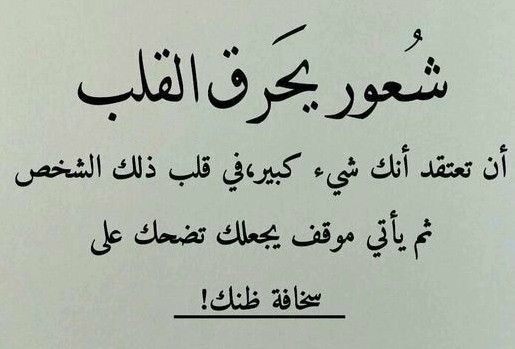 شُعور يحَرق القلب
أن تعتقد أنك شيء كبير،في قلب ذلك الشخص
ثم يأتي موقف يجعلك تضحك على
سخافة ظنك!